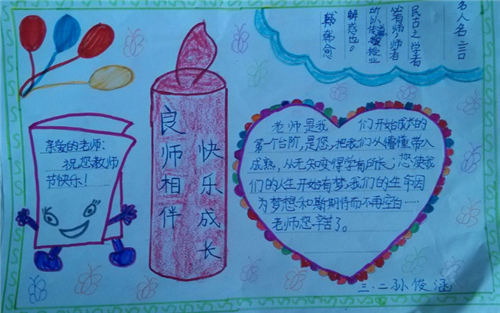 名人名言
古之学者
必有师。师者
所以传道授业
解惑也。
韩愈
亲爱的老师:
祝您教师
节快乐!
良师相伴
快乐成长
老师是我们开始成功的
第一个台阶,是您,把我们从懵懂带入
成熟,从无知变得学有所长;您使我
们的人生开始有梦,我们的生命因
为梦想和期待而不再空白……
老师您辛苦了。
三.二孙俊涵